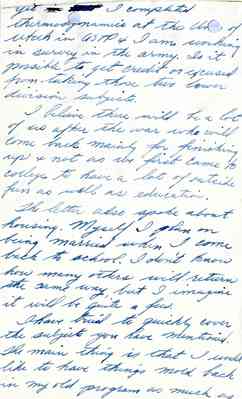 yet I completed
thermodynamics at the U. of
Utah in ASTP & I am working
in survey in the army. Is it
possible to get credit or excused
from taking those two lower
division subjects.
I believe there will be a lot
of us after the war who will
come back mainly for finishing
up & not as we first came to
college to have a lot of outside
fun as well as education.
The letter also spoke about
housing. Myself I plan on
being married when I come
back to school. I don't know
how many others will return
the same way but I imagine
it will be quite a few.
I have tried to quickly cover
the subjects you have mentioned.
The main thing is that I would
like to have things mold back
in my old program as much as